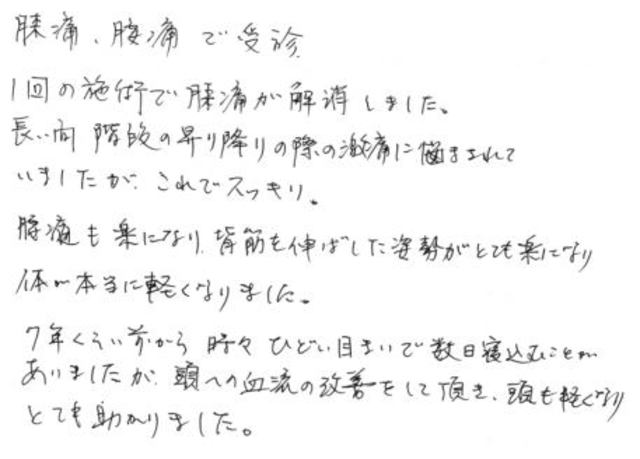 膝痛、腰痛で受診
1回の施術で膝痛が解消しました。
長い間 階段の昇り降りの際の激痛に悩まされて
いましたが、これでスッキリ。
腰痛も楽になり、背筋を伸ばした姿勢がとても楽になり
体が本当に軽くなりました。
7年くらい前から 時々 ひどい目まいで数日寝込むことが
ありましたが、頭への血流の改善をして頂き、頭も軽くなり
とても助かりました。